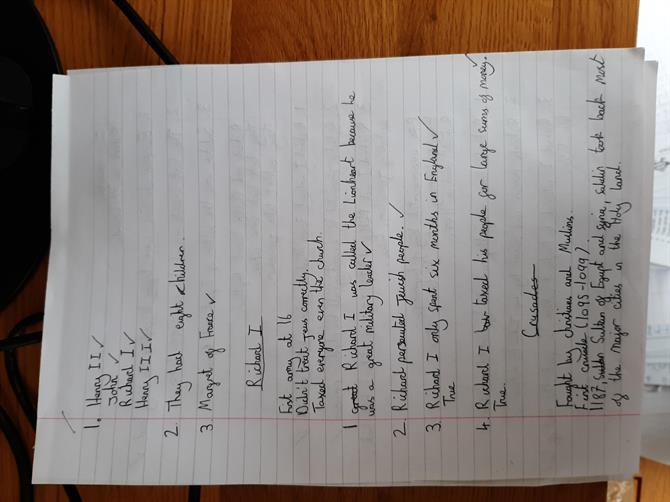 1. Henry II ✓
John ✓
Richard I ✓
Henry III ✓
2. They had eight children.
3. Margret of France ✓
Richard I
First army at 16
Didn't treat Jews correctly.
Taxed everyone even the church.
1 Richard I was called the Lionheart because he
was a great military leader ✓
2. Richard persecuted Jewish people. ✓
3. Richard I only spent six months in England ✓
True
4. Richard I taxed his people for large sums of money. ✓
True.
Crusades
Fought by christians and Muslims.
First crusade (1095-1099)
1187, Sultan of Egypt and Syria, took back most
of the major cities in the Holy Land.